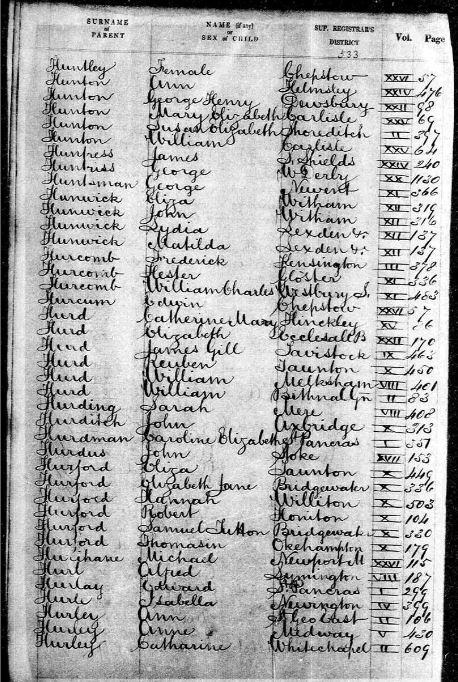 SURNAME of PARENT NAME (if any) or SEX of CHILD SUP. REGISTRAR'S DISTRICT Vol. Page
333
Huntley Female Chepstow XXVI 57
Hunton Ann Helmsley XXIV 476
Hunton George Henry Dewsbury XXII 98
Hunton Mary Elizabeth Carlisle XXV 69
Hunton Susan Elizabeth Shoreditch II 397
Hunton William Carlisle XXV 64
Huntress James S. Shields XXIV 240
Huntriss George W. Derby XX 1130
Huntsman George Newent XI 366
Hunwick Eliza Witham XII 316
Hunwick John Witham XII 316
Hunwick Lydia Lexden &c. XII 137
Hunwick Matilda Lexden &c. XII 137
Hurcomb Frederick Kensington III 378
Hurcomb Hester Gloster XI 336
Hurcomb William Charles Westbury S. XI 483
Hurcum Edwin Chepstow XXVI 57
Hurd Catherine Mary Hinckley XV 66
Hurd Elizabeth Ecclesall B XXII 170
Hurd James Gill Tavistock IX 463
Hurd Reuben Taunton X 450
Hurd William Melksham VIII 401
Hurd William Bethnal Gn II 83
Hurding Sarah Mere VIII 408
Hurditch John Axbridge X 313
Hurdman Caroline Elizabeth St Pancras I 351
Hurdus John Stoke XVII 153
Hurford Eliza Taunton X 449
Hurford Elizabeth Jane Bridgewater X 336
Hurford Hannah Williton X 503
Hurford Robert Honiton X 104
Hurford Samuel Bridgewater X 330
Hurford Thomasin Okehampton X 179
Michael Newport M XXVI 115
Hurl Alfred Lymington VIII 187
Hurlay Edward St Pancras I 299
Hurle Isabella Newington IV 399
Hurler Ann St Geo East II 106
Hurley Anne Midway V 430
Hurley Catharine Whitechapel II 609